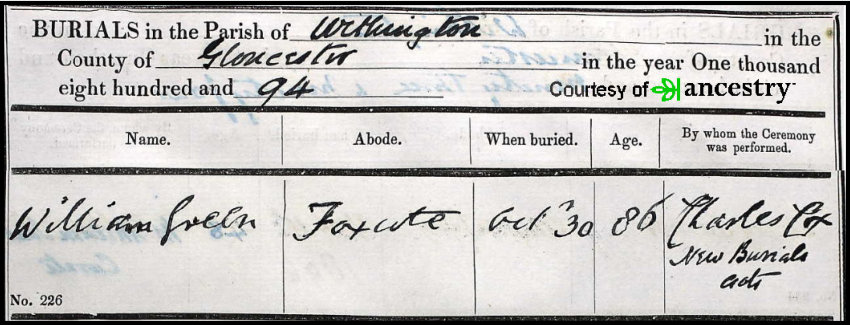 BURIALS in the Parish of Withington in the
County of Gloucester in the year One thousand
eight hundred and 94 Courtesy of ancestry
Name. Abode. When buried. Age. By whom the Ceremony was performed.
William Green Foxcote Octr 30 86 Charles Cox
New Burials
Acts
No. 226